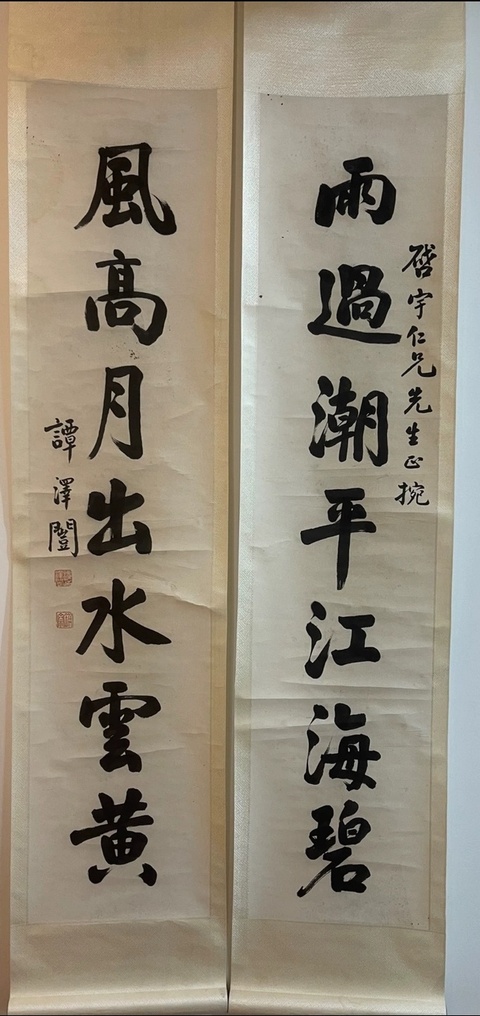 雨過潮平江海碧
啓宇仁兄先生正捥
風高月出水雲黃
譚澤闓